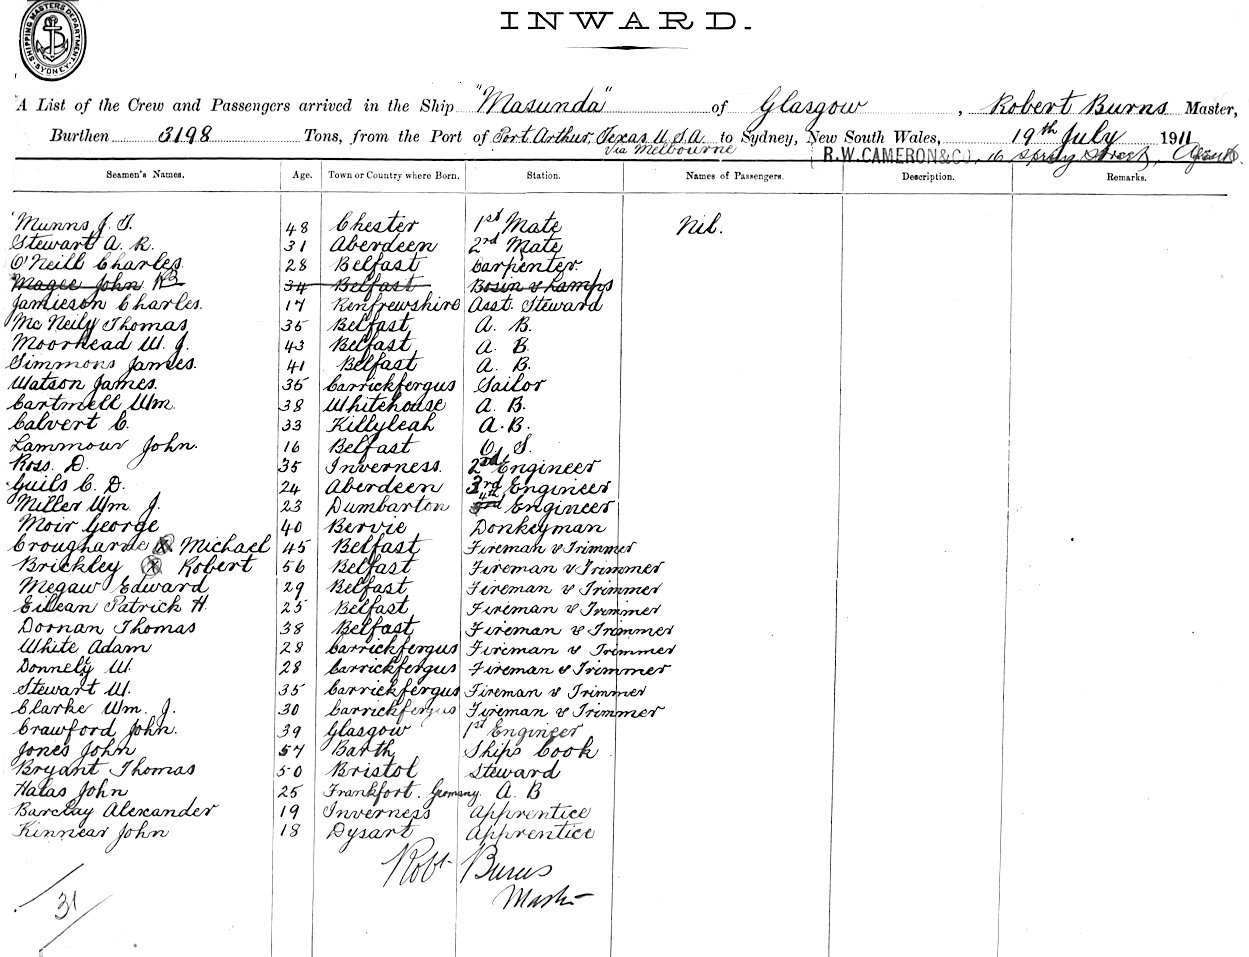 SHIPPING MASTERS DEPARTMENT. SYDNEY.
INWARD.
A List of the Crew and Passengers arrived in the Ship "Masunda" of Glasgow, Robert Burns Master,
Burthen 3198 Tons, from the Port of Port Arthur, Texas U.S.A. to Sydney, New South Wales, 19th July 1911
via Melbourne R.W. CAMERON & CO., 16 Spring Street, Agents
Seamen's Names. Age. Town or Country where Born. Station. Names of Passengers. Description. Remarks.
Munns J. T. 48 Chester 1st Mate Nil.
Stewart A. R. 31 Aberdeen 2nd Mate
O'Neill Charles. 28 Belfast Carpenter.
Magee John 34 Belfast Bosin & Lamps
Jamieson Charles. 17 Renfrewshire Asst. Steward
Mc Neily Thomas 35 Belfast A. B.
Moorhead W. J. 43 Belfast A. B.
Simmons James. 41 Belfast A. B.
Watson James. 35 Carrickfergus Sailor
Cartmell Wm. 38 Whitehouse A. B.
Calvert C. 33 Killyleah A. B.
Lammour John. 16 Belfast O. S.
Ross. D. 35 Inverness. 2nd Engineer
Guils C. D. 24 Aberdeen 3rd Engineer
Miller Wm. J. 23 Dumbarton 4th Engineer
Moir George 40 Bervie Donkeyman
Michael 45 Belfast Fireman & Trimmer
Brickley X Robert 56 Belfast Fireman & Trimmer
Megaw Edward 29 Belfast Fireman & Trimmer
Patrick H. 25 Belfast Fireman & Trimmer
Doornan Thomas 38 Belfast Fireman & Trimmer
White Adam 28 Carrickfergus Fireman & Trimmer
Donnely W. 28 Carrickfergus Fireman & Trimmer
Stewart W. 35 Carrickfergus Fireman & Trimmer
Clarke Wm. J. 30 Carrickfergus Fireman & Trimmer
Crawford John. 39 Glasgow 1st Engineer
Jones John 57 Barth Ships Cook
Bryant Thomas 50 Bristol Steward
Halas John 25 Frankfort. Germany. A. B
Barclay Alexander 19 Inverness Apprentice
Kinnear John 18 Dysart Apprentice
Robt Burns
Master
31